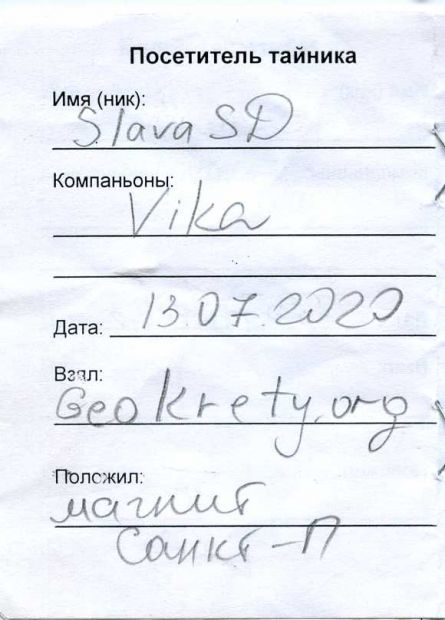 Посетитель тайника
Имя (ник):
SlavaSD
Компаньоны:
Vika
Дата: 13.07.2020
Взял:
Geokrety.org
Положил:
магнит
Санкт-П